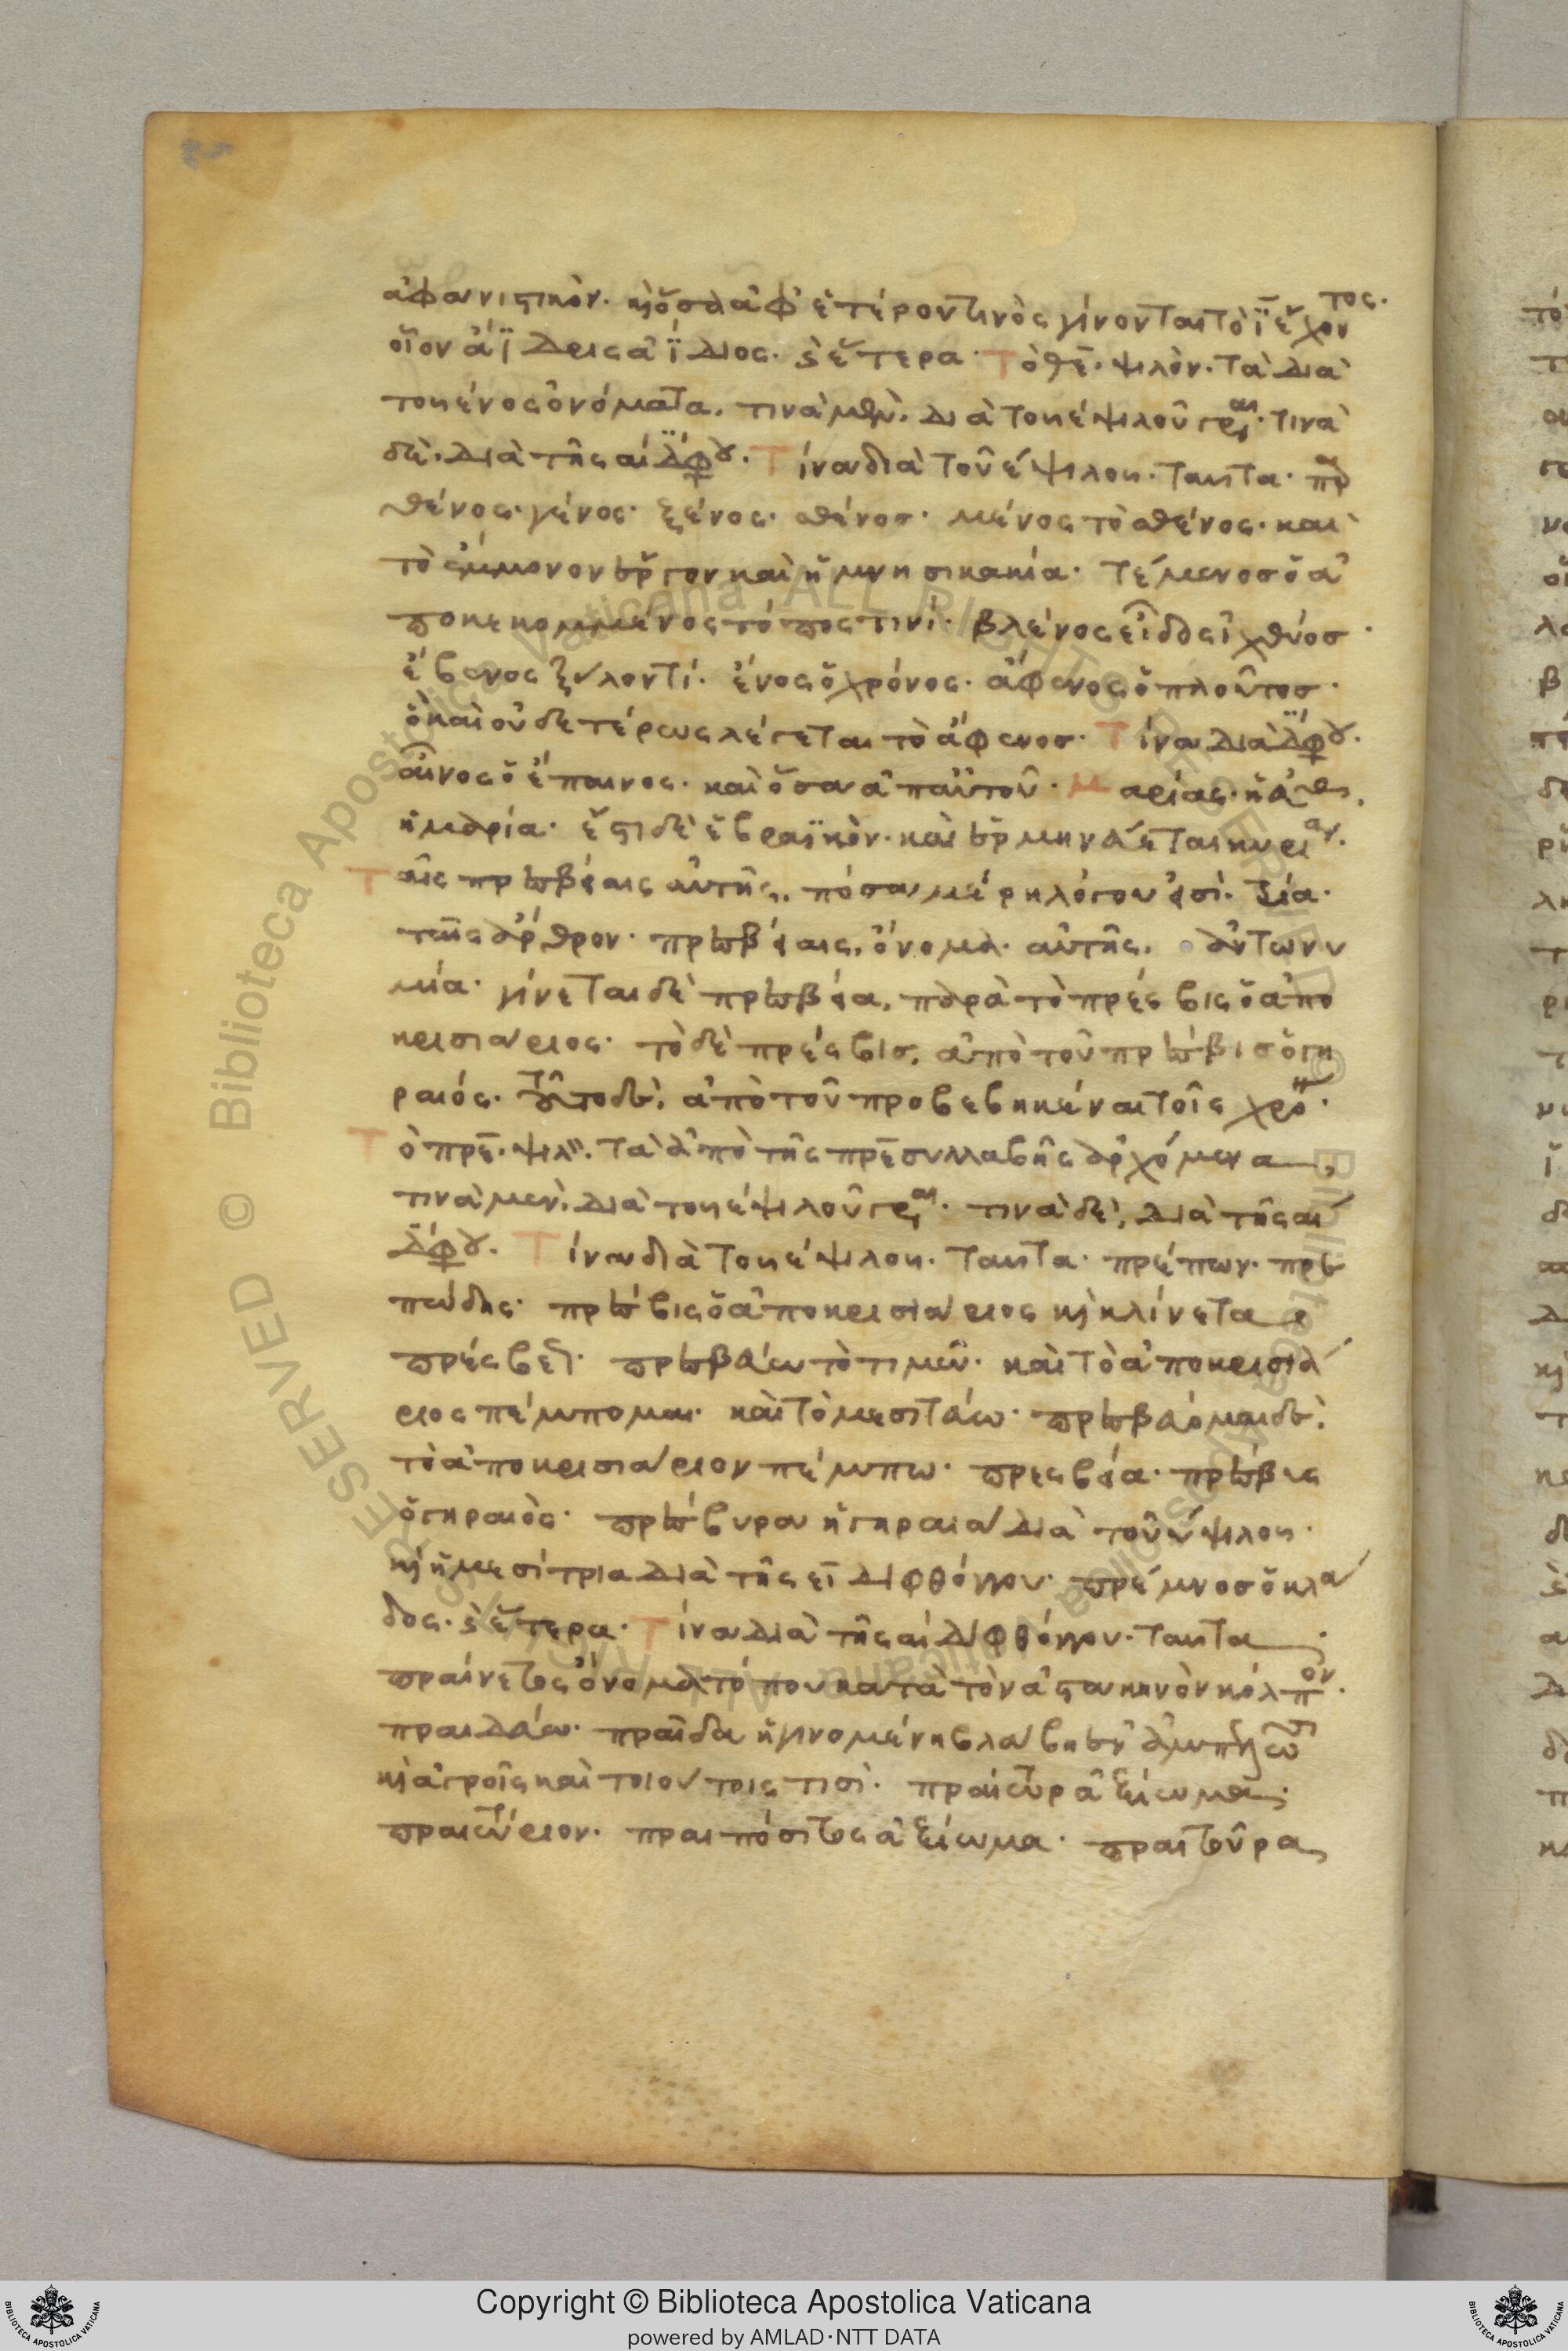 ἀφανιστικόν. καὶ ὅσα ἀφ' ἑτέρου τινὸς γίνονται τὸ ϊ ἔχοντος.
οἷον ἄϊδρις ἀΐδιος. καὶ ἕτερα. Τὸ θε. ψιλόν. τὰ διὰ
του ένος ὀνόματα. τινὰ μὲν. διὰ τοῦ ε ψιλοῦ γρ. τινὰ
δὲ. διὰ τῆς αι διφ. Τίνα διὰ τοῦ ε ψιλου. ταυτα. παρ
θένος. γένος. ξένος. σθένος. μένος τὸ σθένος. καὶ
τὸ ἔμμονον ἔργον καὶ ἡ μνησικακία. τέμενος ὁ ἀ
ποκεκομμένος τόπος τινί. βλένος εἶδος ἰχθύος.
ἔβενος ξύλον τί. ἔνος ὁ χρόνος. ἄφενος ὁ πλοῦτος.
ὃ καὶ οὐδετέρως λέγεται τὸ ἄφενος. Τίνα διὰ διφ.
αἶνος ὁ ἔπαινος. καὶ ὅσα ἀπ' αὐτοῦ. Μαρίας. ἡ εὐθ.
ἡ μαρία. ἔστι δὲ ἑβραϊκὸν. καὶ ἑρμηνεύεται κυρια.
Ταῖς πρεσβείαις αὐτῆς. πόσα μέρη λόγου εἰσί. τρία.
ταῖς ἄρθρον. πρεσβείαις, ὄνομα. αὐτῆς. ἀντωνυ
μία. γίνεται δὲ πρεσβεία, παρὰ τὸ πρέσβις ὁ ἀπο
κρισιάριος. τὸ δὲ πρέσβις, ἀπὸ τοῦ πρέσβις ὁ γη
ραιός. τοῦτο δὲ. ἀπὸ τοῦ προβεβηκέναι τοῖς χρο.
Τὸ πρε. ψιλ. τὰ ἀπὸ τῆς πρε συλλαβῆς ἀρχόμενα,
τινὰ μεν. διὰ του ε ψιλοῦ γρ. τινὰ δὲ, διὰ τῆς αι
διφ. Τίνα διὰ του ε ψιλου. ταυτα. πρέπων. πρε
πώδης. πρέσβις ὁ ἀποκρισιάριος καὶ κλίνεται
πρέσβεως. πρεσβεύω τὸ τιμῶ. καὶ τὸ ἀποκρισιά
ριος πέμπομαι. καὶ τὸ μεσιτεύω. πρεσβεύομαι δὲ.
τὸ ἀποκρισιάριον πέμπω. πρεσβεία. πρέσβις
ὁ γηραιὸς. πρέσβυρα ἡ γηραιὰ διὰ τοῦ υ ψιλου.
καὶ ἡ μεσίτρια διὰ τῆς ει διφθόγγου. πρέμνος ὁ κλά
δος. καὶ ἕτερα. Τίνα διὰ τῆς αι διφθόγγου. ταυτα.
πραίνετος ὄνομα τόπου κατὰ τὸν ἀστακηνὸν κόλπον.
πραιδεύω. πραῖδα ἡ γινομένη βλάβη ἐν ἀμπελῶσι
καὶ ἀγροῖς καὶ τοιούτοις τισὶ. πραίτωρ ἀξίωμα.
πραιτώριον. πραιπόσιτος ἀξίωμα. πραιτοῦρα,
Copyright © Biblioteca Apostolica Vaticana
powered by AMLAD·NTT DATA